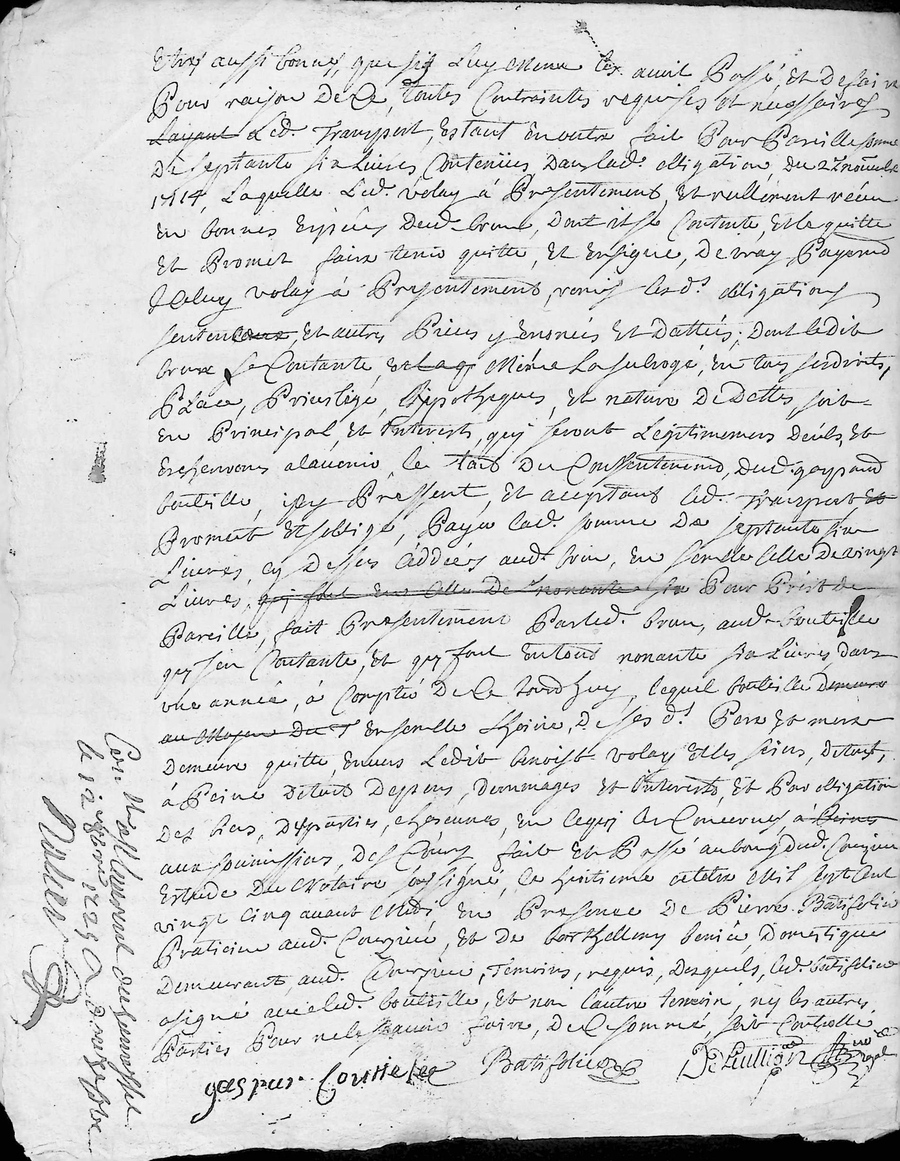 Etres aussi bonnes, que sig Luy Meme les avoit Passé, Et de faire
Pour raison De Ce, toutes Contraintes requises et necessaires
Layant Led. Transport, Estant En outre fait Pour Pareille somme
De septante six Livres Contenües Dans lad. obligation, du 22 novembre
1714, Laquelle Led. volay à Presentement, Et reellement receu
En bonnes Espèces Dud. brun, Dont il se Contente, Et le quitte
Et Promet faire tenir quitte, Et En signe, De vray Payement
Jceluy volay à Presentement, remis lesd. obligations
senten Et autres Pieces y Enoncées Et Dattées, Dont ledit
brun se Contante, Et Même La subrogé, En tous ses droits,
Place, Privilége, hipotheques, Et nature De Dettes, soit
En Principal, Et Interests, quy seront Legitimement Deubs, Et
Escheuvrons alavenir, le tout Du Conssentement, dud. gaspard
bouteille, icy Pressent, Et aceptant led. transport, Et
Promet Et soblige, Payer lad. somme De septante six
Livres, cy Dessus Céddées aud. brun, En semble Celle De vingt
Livres, quj font En Celle De nonante six Pour Prest de
Pareille, fait Presentement Par led. brun, aud. bouteille
quy sen Contante, Et quy font En tout nonante six Livres, dans
une année, à Compter De Ce Jourdhuy, lequel bouteille Demeure
au Moyen Du T Ensemble Lhoirie, De ses d. Pere Et mere
Demeure quitte, Envers Ledit benoist volay Et les siens, De tout,
à Peine De tous Depens, dommages Et Interests, Et Par obligation
Des biens, Des parties, chascunes, En ce quj les Concerne, à Peine
aux soumissions, Des Cours, fait Et Passé au bourg dud. Courzieu
Estude Du Notaire soussigné, Le huitieme octobre Mil sept Cent
vingt Cinq avant Midy, En Presence De Pierre Batifolié
Praticien aud. Courzieu, Et De barthellemy Domestique
Demeurant, aud. Courzieu, Temoins, requis, Desquels, led. batifolié
a signé avec led. bouteille, Et non lautre temoin, ny les autres
Parties Pour ne le sçavoir faire, De Ce sommé, soit Controllé
gaspar Batifolié
Con.
le 12